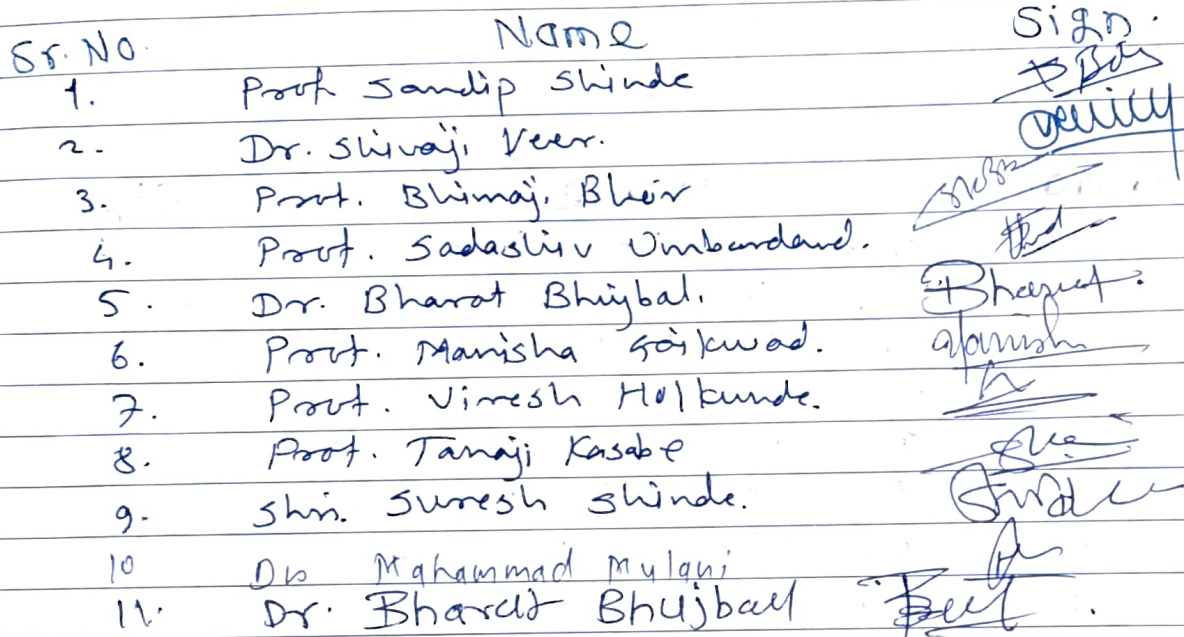 Sr. No. Name Sign.
1. Prof Sandip Shinde
2. Dr. Shivaji Veer.
3. Prof. Bhimaji Bhor
4. Prof. Sadashiv Umbardand.
5. Dr. Bharat Bhujbal.
6. Prof. Manisha Gaikwad. Manisha
7. Prof. Viresh Holkunde.
8. Prof. Tanaji Kasabe
9. Shri. Suresh Shinde.
10 Dr Mahammad Mulani
11. Dr. Bharat Bhujball